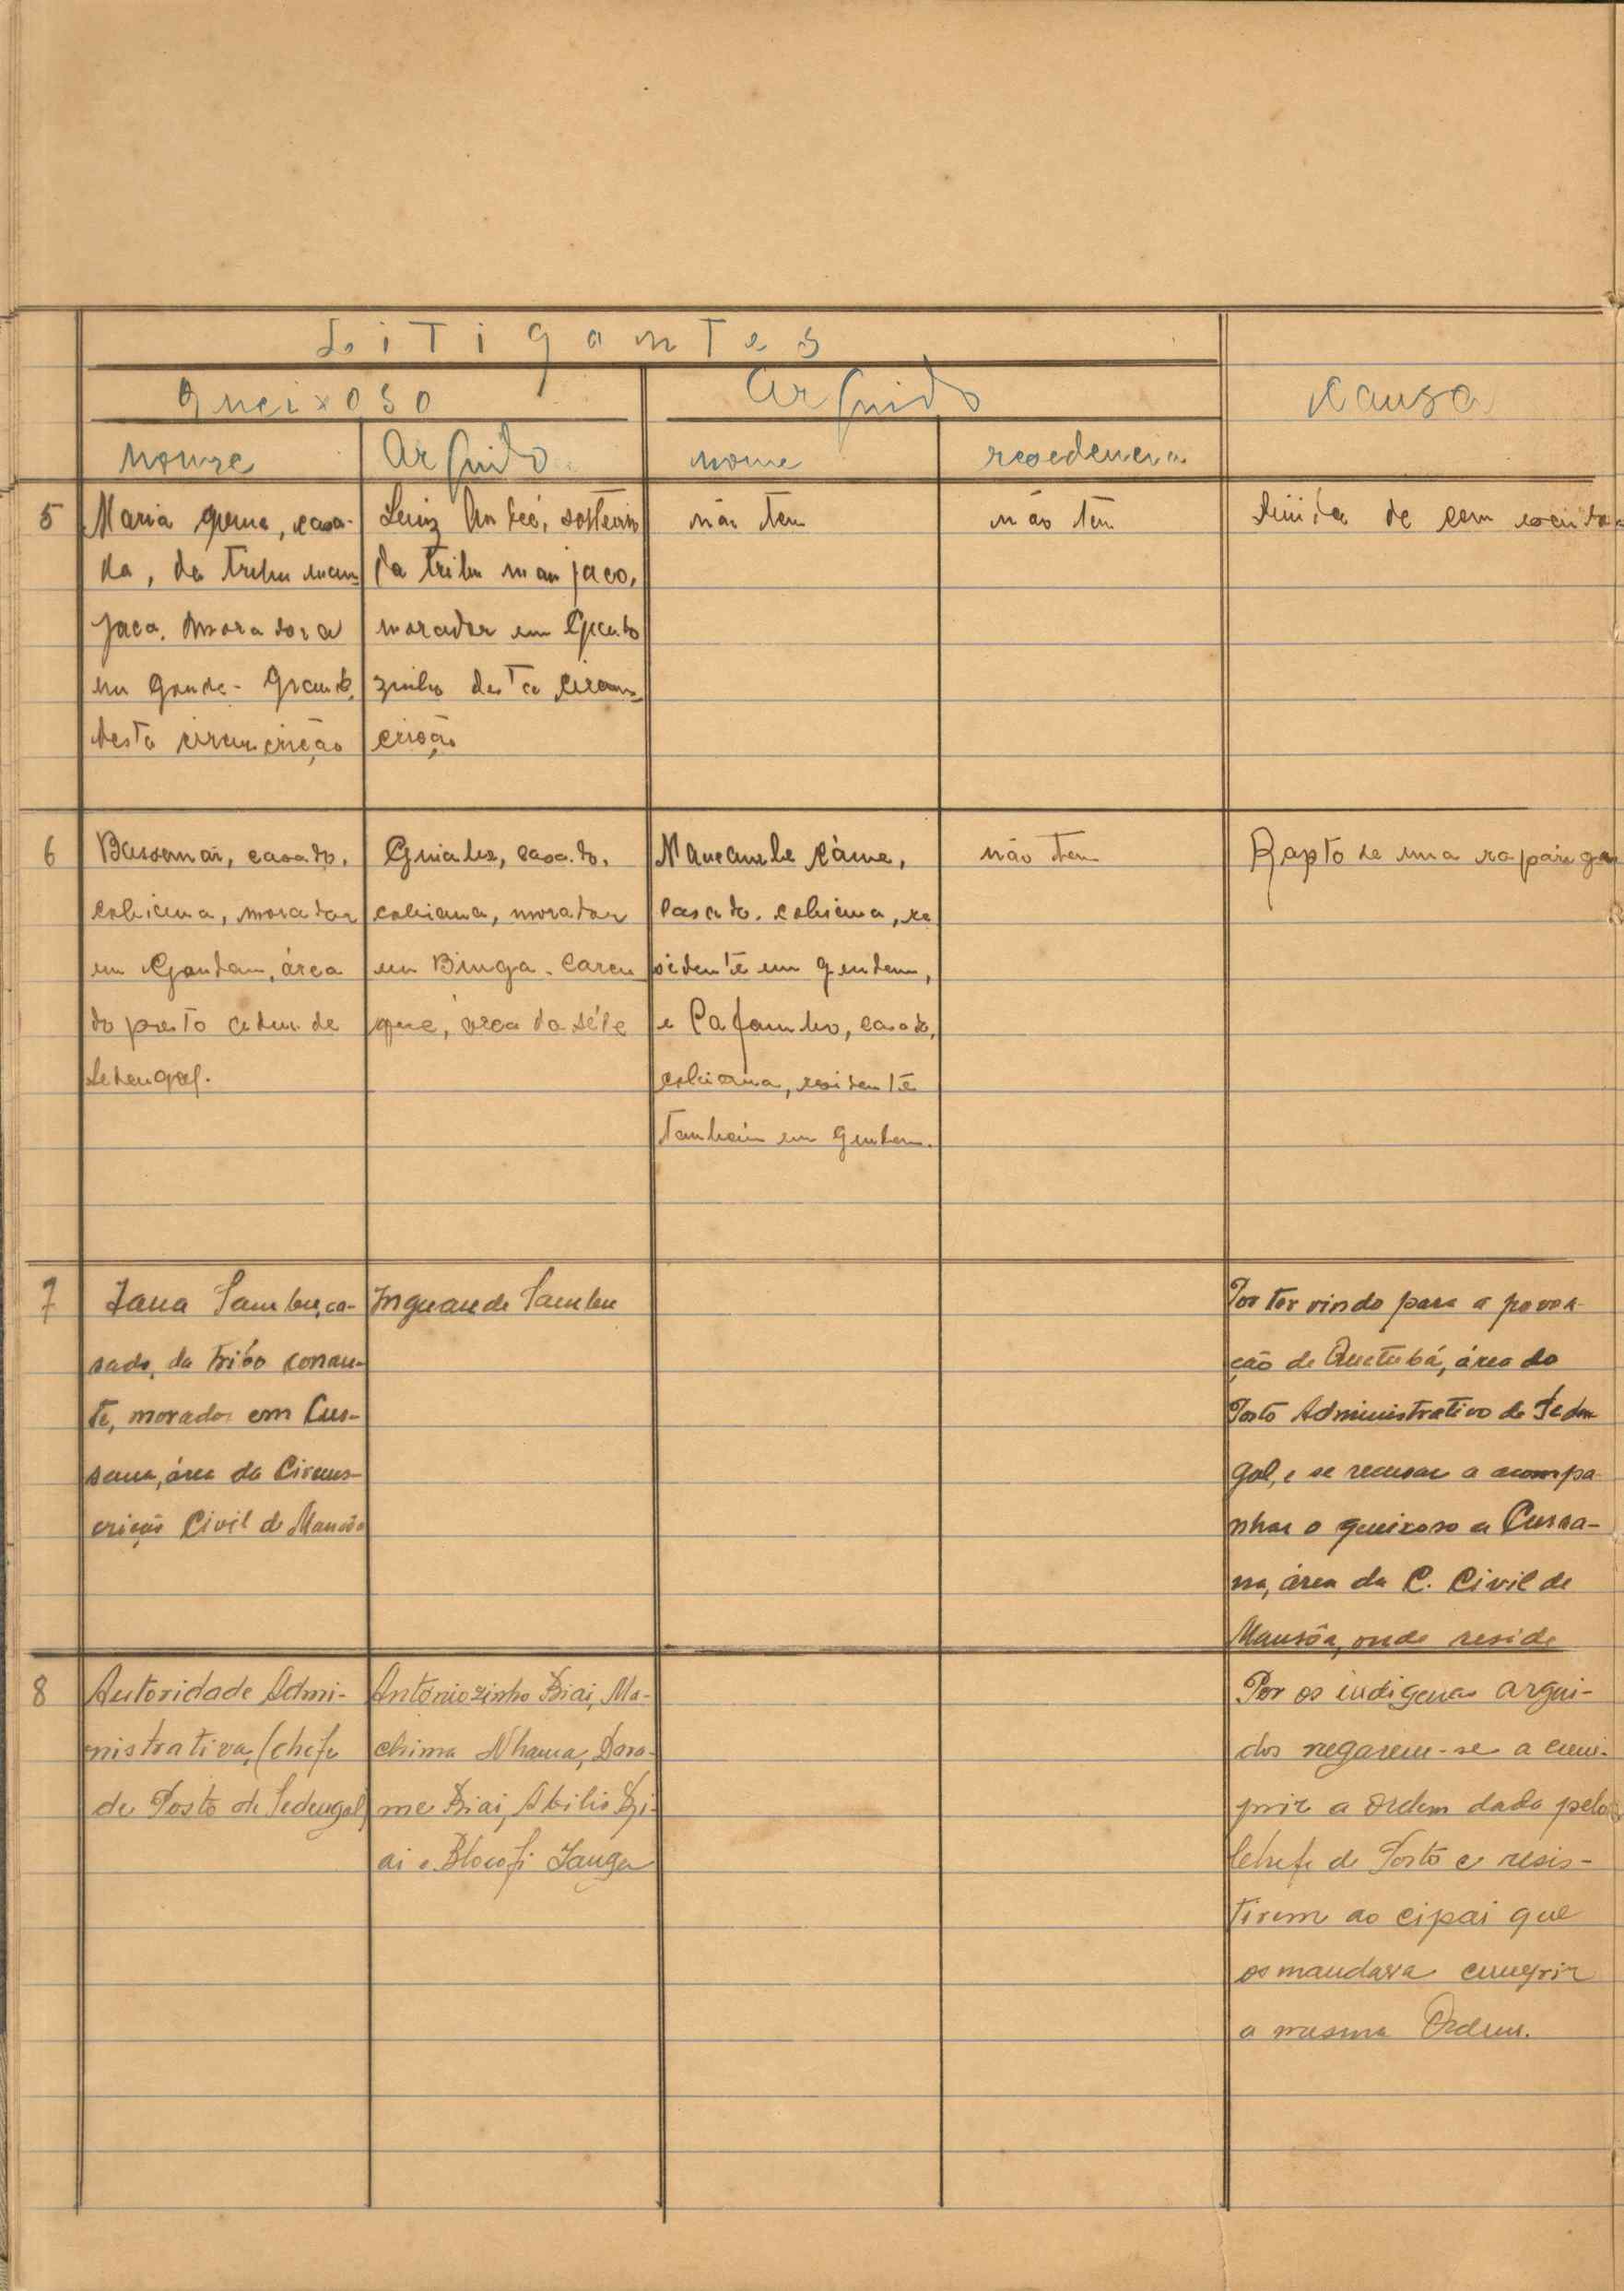 Litigantes
Queixoso
Arguido
Causa
nome
Arguido
nome
resedencia
5
Maria
, casa-
da, da tribu man
jaca. moradora
em
desta circunscrição
Luiz André, solteiro
da tribu manjaco,
morador em
zinho desta circuns
crição
não tem
não tem
de cem escudos
6
, casado,
cobiana, morador
em
, área
do posto
de
Sedengal.
, casado,
cobiana, morador
em Binga. Careu
que, área da séde
Casado. cobiana, re
sidente em
e Cafambo, casado,
cobiana, residente
tambem em
não tem
Rapto de uma rapariga
7
Jana Sambu, ca-
sado, da tribo consan-
te, morador em Cus-
sana, área da Circuns-
crição Civil de Mansôa
Inquande Sambu
Por ter vindo para a povoa-
ção de Quetubá, área do
Posto Administrativo de Seden
gal, e se recusar a acompa-
nhar o queixoso a Cussa-
na, área da C. Civil de
Mansôa, onde reside
8
Autoridade Admi-
nistrativa, (chefe
de Posto de Sedengal)
Antoniozinho Biai, Ma-
chima Nhama, Dora-
me Biai, Abilio Bi-
ai e
Janga
Por os indigenas argui-
dos negarem-se a cum-
prir a ordem dada pelo
Chefe de Posto e resis-
tirem ao cipai que
os mandava cumprir
a mesma Ordem.